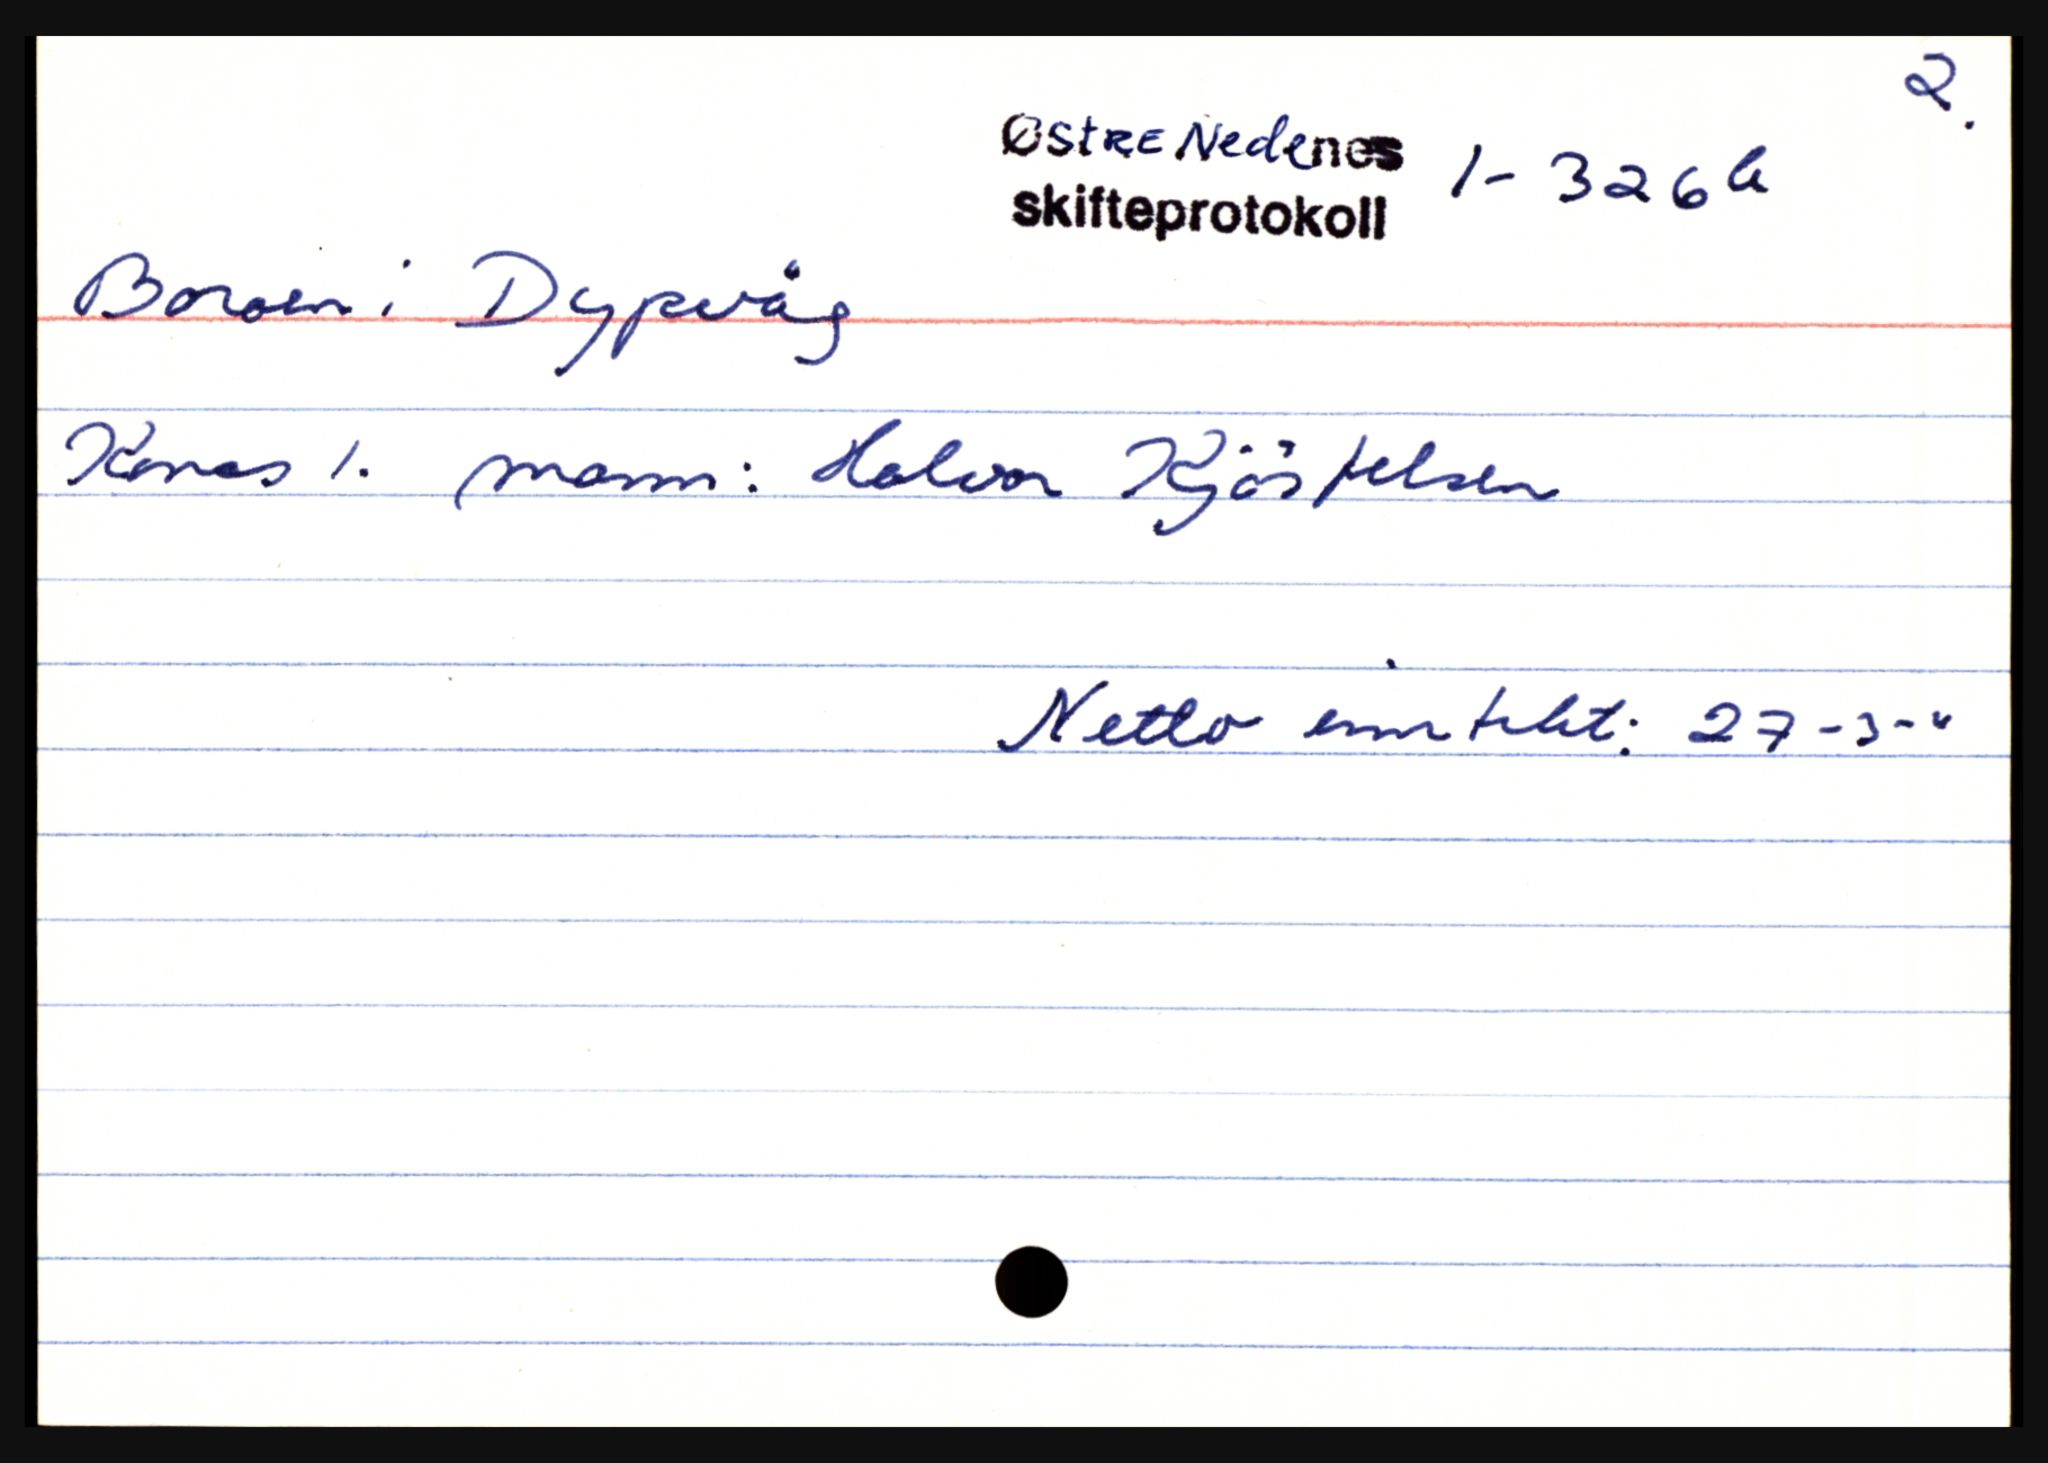 2.
Østre Nedenes 1-326 b
skifteprotokoll
Boroen i Dypvåg
Konas 1. mann: Halvor Kjöstelsen
Netto inntekt: 27-3-"